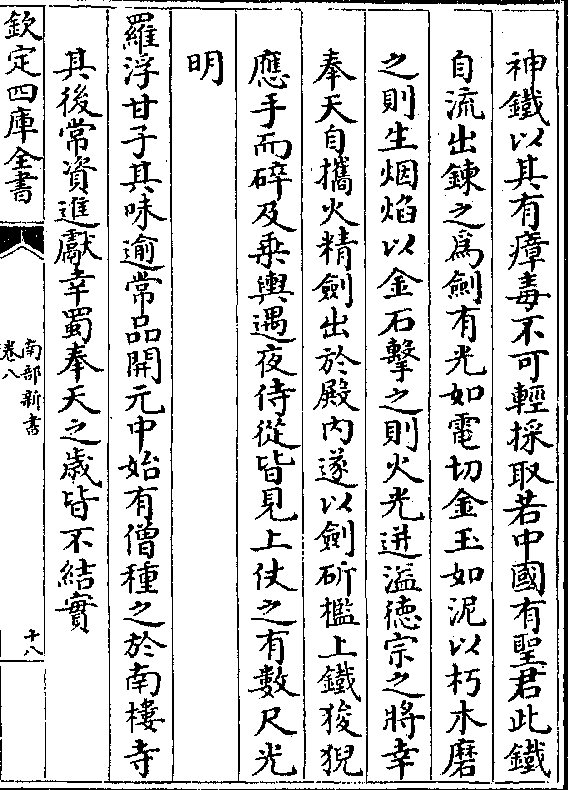 神鐵以其有瘴毒不可輕採取若中國有聖君此鐵
自流出鍊之爲劒有光如電切金玉如泥以朽木磨
之則生烟焰以金石擊之則火光迸溢徳宗之將幸
奉天自攜火精劒出於殿内遂以劒斫檻上鐵狻猊
應手而碎及乗輿遇夜侍從皆見上仗之有數尺光
明
羅浮甘子其味逾常品開元中始有僧種之於南樓寺
其後常資進獻幸蜀奉天之歲皆不結實
欽定四庫全書
南部新書
卷八
十八